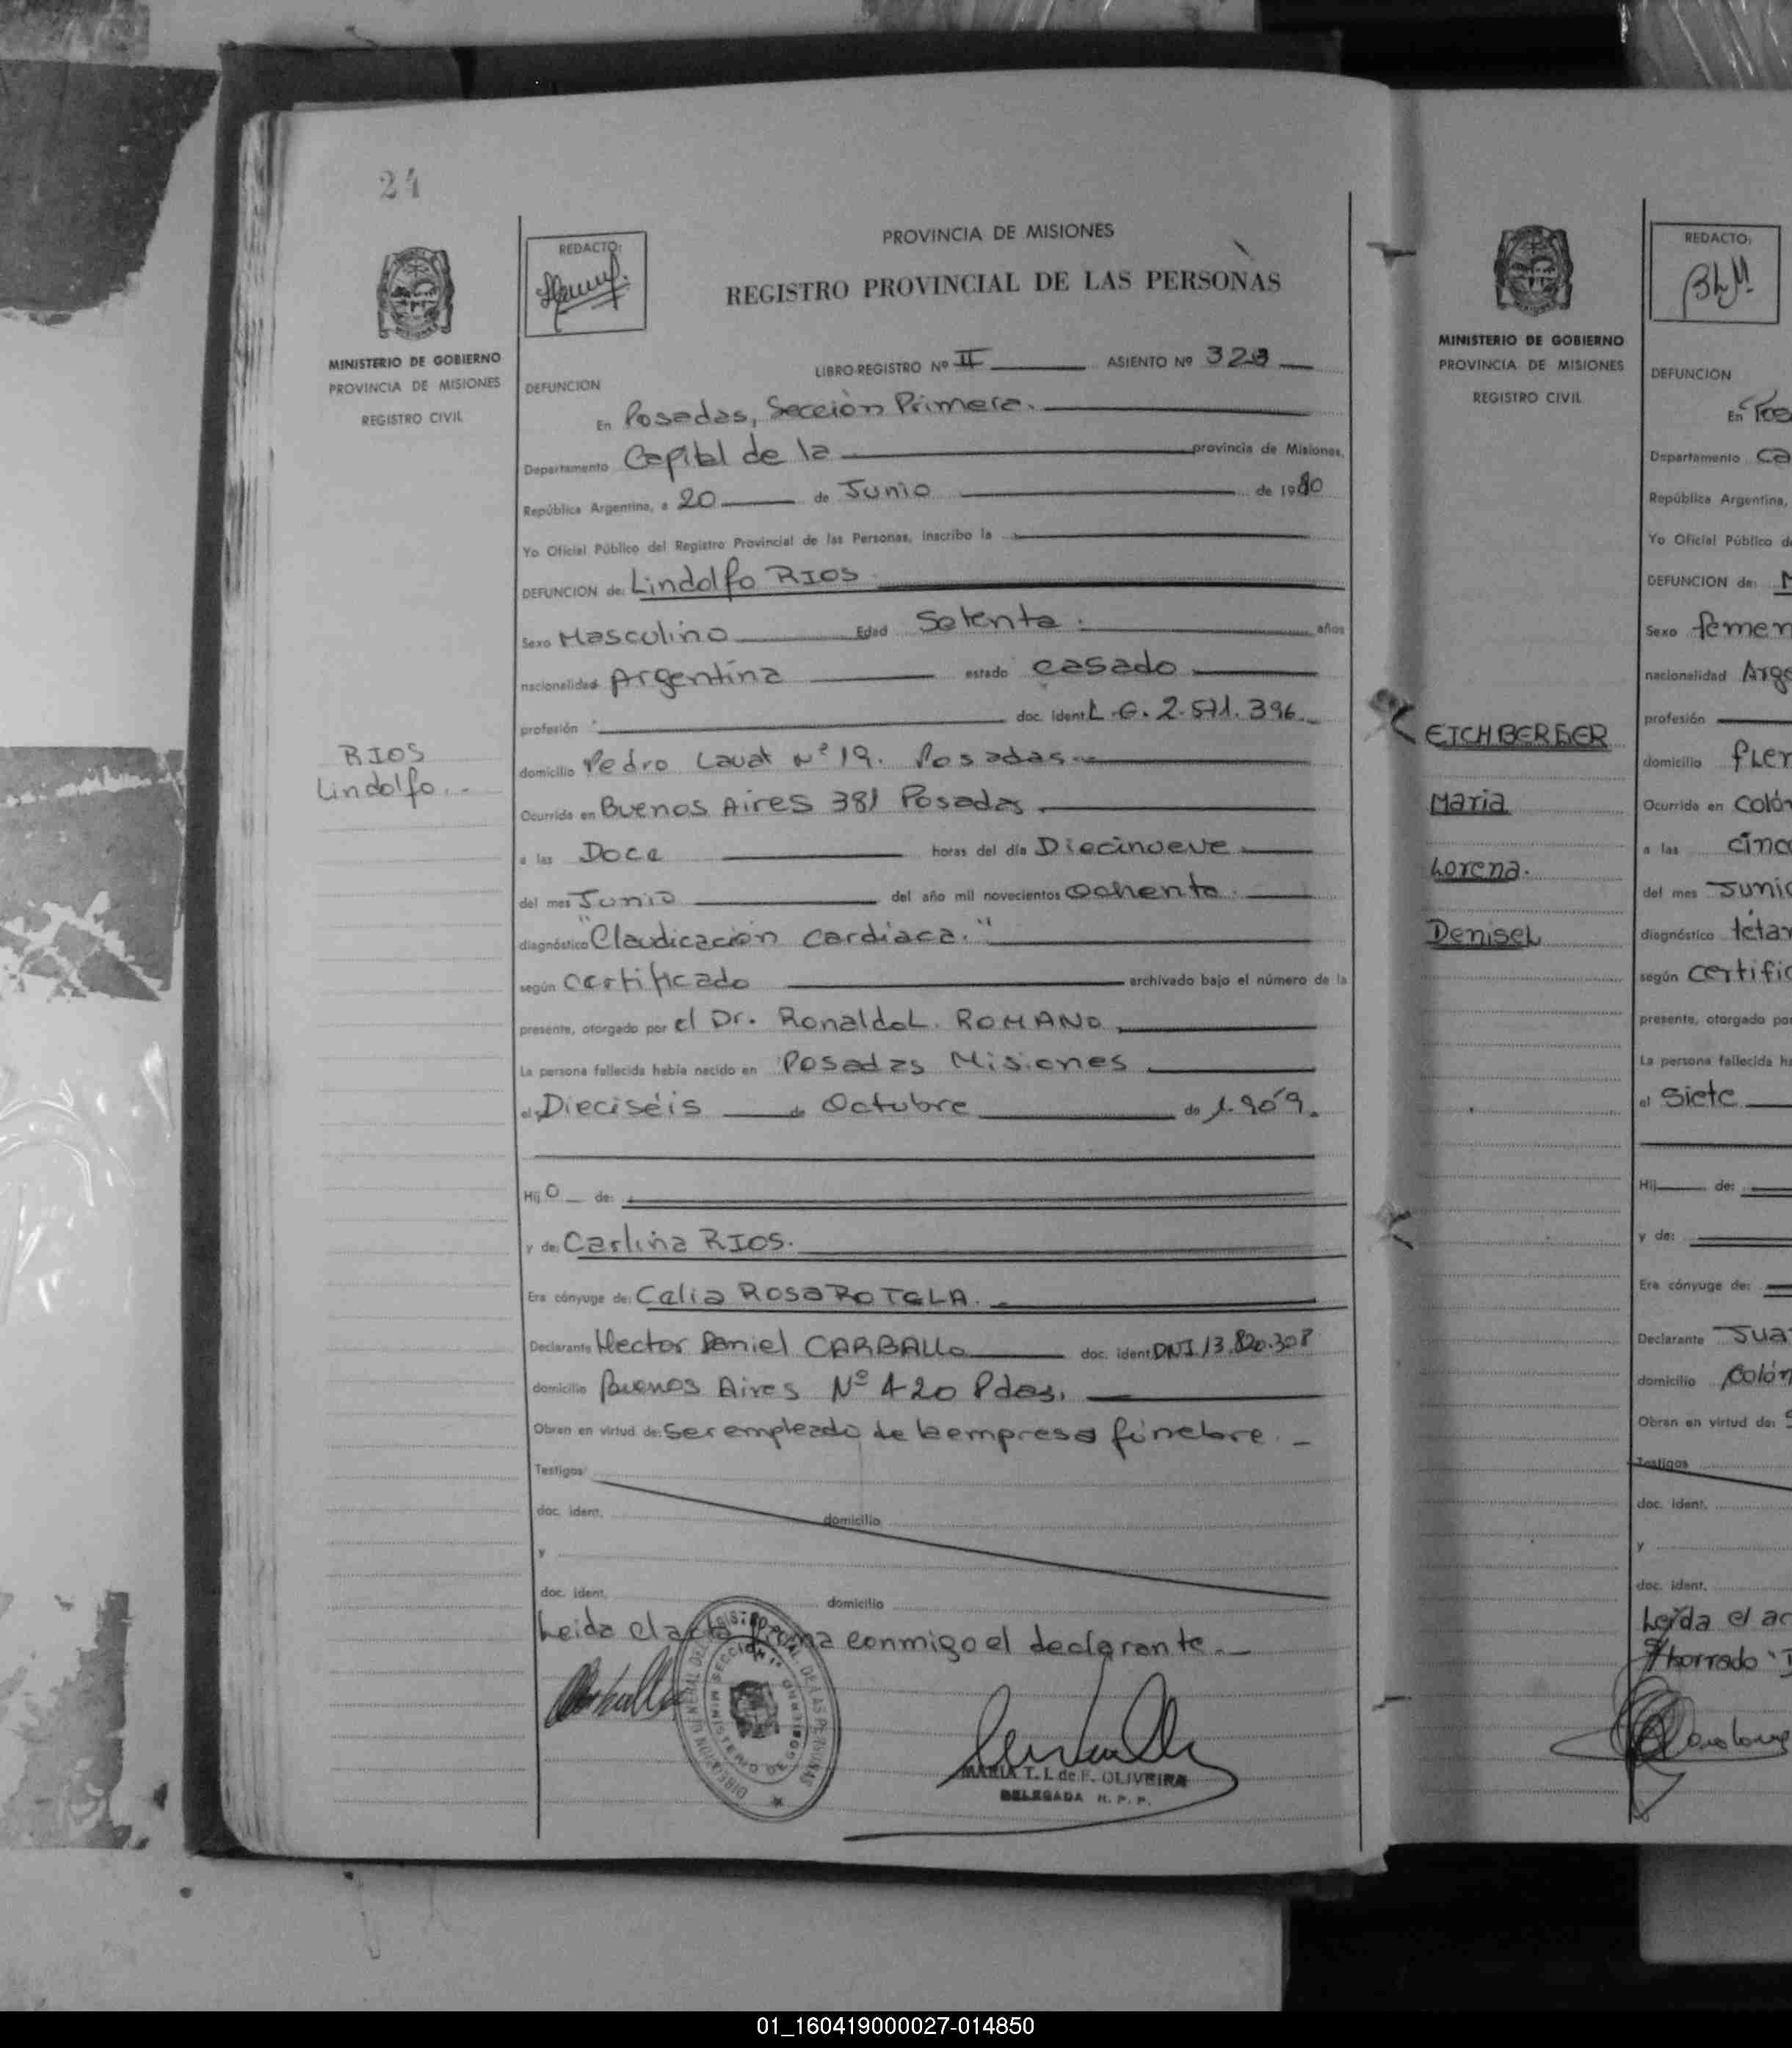 24
MINISTERIO DE GOBIERNO
PROVINCIA DE MISIONES
REGISTRO CIVIL
RIOS
Lindolfo.-
REDACTO:
PROVINCIA DE MISIONES
REGISTRO PROVINCIAL DE LAS PERSONAS
LIBRO-REGISTRO Nº II ASIENTO Nº 323
DEFUNCION
En Posadas, Sección Primera.
Departamento Capital de la provincia de Misiones,
República Argentina, a 20 de Junio de 1980
Yo Oficial Público del Registro Provincial de las Personas, inscribo la
DEFUNCION de: Lindolfo RIOS
Sexo Masculino Edad Setenta. años
nacionalidad Argentina estado casado
profesión doc. ident. L.E. 2.571.396
domicilio Pedro Lavat Nº 19. Posadas.-
Ocurrida en Buenos Aires 381 Posadas.
a las Doce horas del día Diecinueve
del mes Junio del año mil novecientos ochenta.
diagnóstico "Claudicación cardiaca."
según certificado archivado bajo el número de la
presente, otorgado por el Dr. Ronaldo L. ROMANO
La persona fallecida había nacido en Posadas Misiones
el Dieciséis de Octubre de 1.909.
Hijo de:
y de: Carlina RIOS.
Era cónyuge de: Celia Rosa ROTELA.
Declarante Hector Daniel CARBALLO doc. ident. DNI.13.820.308
domicilio Buenos Aires Nº 420 Pdas.
Obran en virtud de: Ser empleado de la empresa fúnebre.-
Testigos
doc. ident. domicilio
y
doc. ident. domicilio
Leida el acta firma conmigo el declarante.-
DIRECCION GENERAL DEL REGISTRO PROVINCIAL DE LAS PERSONAS
MINISTERIO DE GOBIERNO
SECCION 1ª
MARIA T. I. de F. OLIVEIRA
DELEGADA R. P. P.
MINISTERIO DE GOBIERNO
PROVINCIA DE MISIONES
REGISTRO CIVIL
EICHBERGER
Maria
Lorena.
Denisel
REDACTO:
BLM
DEFUNCION
En Pos
Departamento Ca
República Argentina,
Yo Oficial Público d
DEFUNCION de: M
Sexo femen
nacionalidad Arge
profesión
domicilio
Ocurrida en Colón
a las cinco
del mes Junio
diagnóstico tétan
según certific
presente, otorgado por
La persona fallecida ha
el siete
Hij de:
y de:
Era cónyuge de:
Declarante Jua
domicilio Colón
Obran en virtud de: S
Testigos
doc. ident.
y
doc. ident.
Leída el ac
01_160419000027-014850